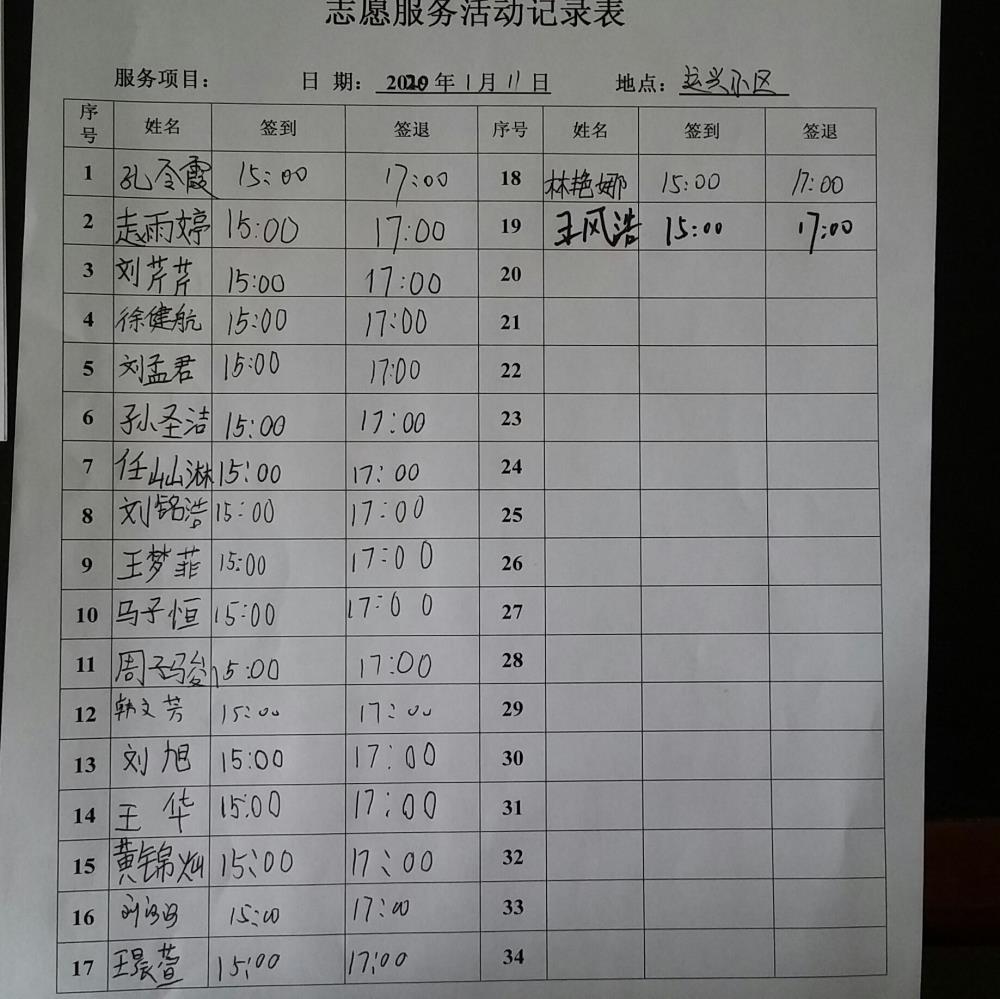 志愿服务活动记录表
服务项目： 日 期： 2020 年 1 月 11 日 地点： 运兴小区
序号 姓名 签到 签退 序号 姓名 签到 签退
1 孔令霞 15:00 17:00 18 林艳娜 15:00 17:00
2 赵雨婷 15:00 17:00 19 王风浩 15:00 17:00
3 刘芹芹 15:00 17:00 20
4 徐健航 15:00 17:00 21
5 刘孟君 15:00 17:00 22
6 孙圣洁 15:00 17:00 23
7 任山山淋 15:00 17:00 24
8 刘铭浩 15:00 17:00 25
9 王梦菲 15:00 17:00 26
10 马子恒 15:00 17:00 27
11 周子骏 15:00 17:00 28
12 韩文芳 15:00 17:00 29
13 刘旭 15:00 17:00 30
14 王华 15:00 17:00 31
15 黄锦灿 15:00 17:00 32
16 15:00 17:00 33
17 王晨萱 15:00 17:00 34